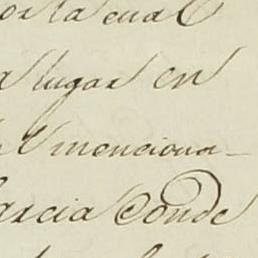 or la cual
lugar en
el menciona-
Garcia Conde